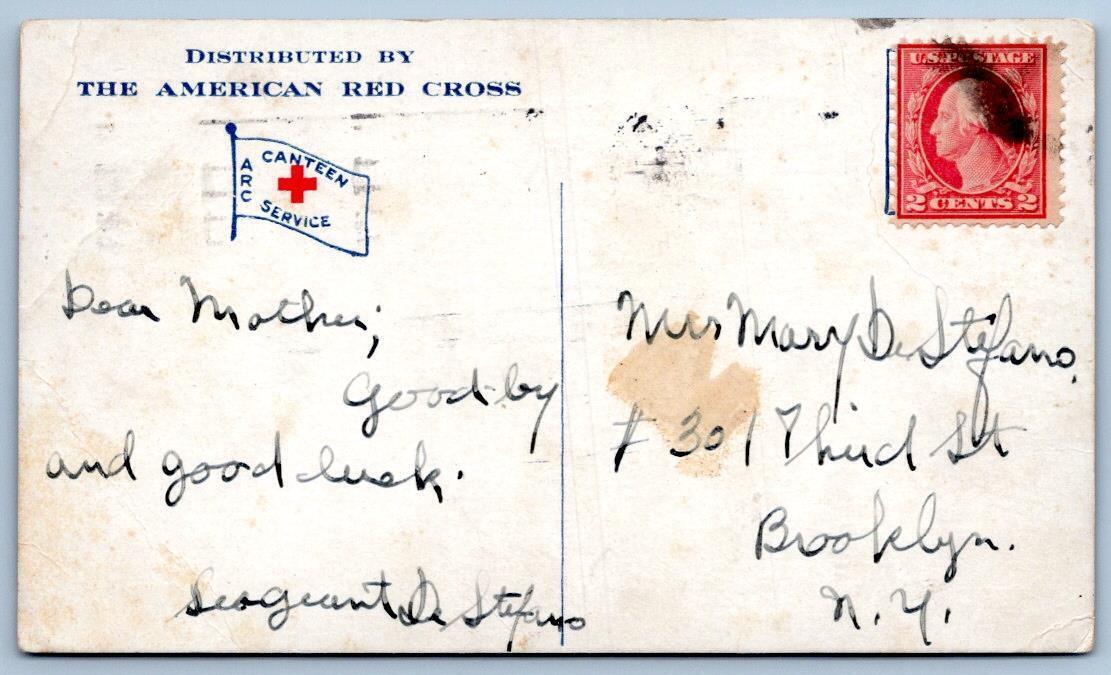 DISTRIBUTED BY
THE AMERICAN RED CROSS
ARC
CANTEEN
SERVICE
U.S. POSTAGE
2 CENTS 2
Dear Mother;
Good-by
and good luck.
Sergeant De Stefano
Mrs Mary De Stefano,
# 301 Third St
Brooklyn.
N.Y.